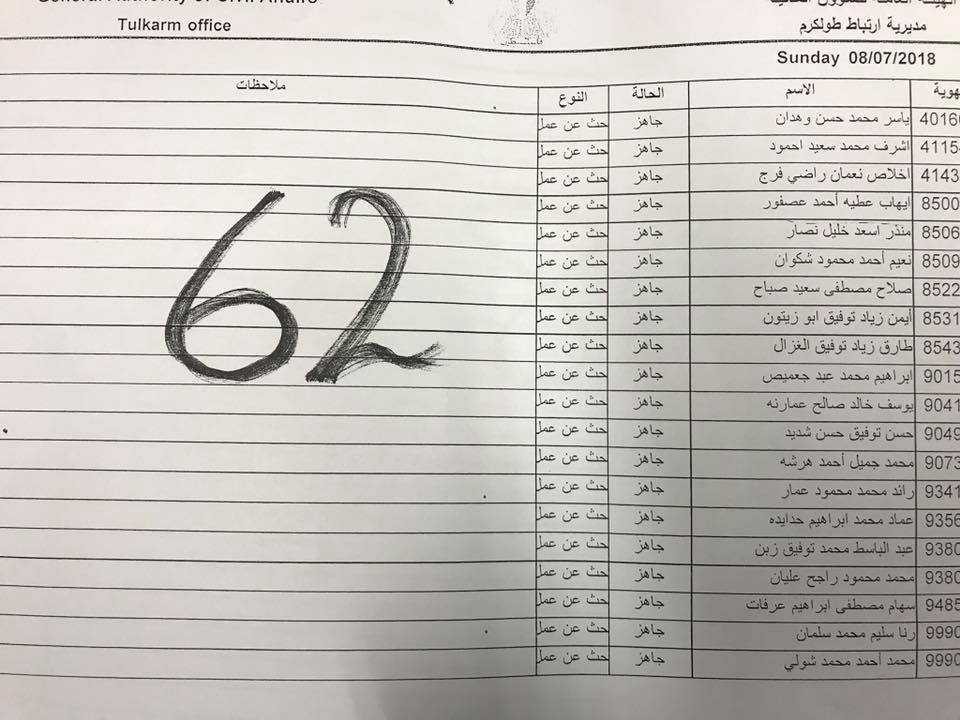 Tulkarm office
مديرية ارتباط طولكرم
Sunday 08/07/2018
الاسم الحالة النوع ملاحظات
ياسر محمد حسن وهدان جاهز حث عن عمل
اشرف محمد سعيد احمود جاهز حث عن عمل
اخلاص نعمان راضي فرج جاهز حث عن عمل
ايهاب عطيه أحمد عصفور جاهز حث عن عمل
منذر اسعد خليل نصار جاهز حث عن عمل
نعيم أحمد محمود شكوان جاهز حث عن عمل
صلاح مصطفى سعيد صباح جاهز حث عن عمل
أيمن زياد توفيق ابو زيتون جاهز حث عن عمل
طارق زياد توفيق الغزال جاهز حث عن عمل
ابراهيم محمد عبد جعميص جاهز حث عن عمل
يوسف خالد صالح عمارنه جاهز حث عن عمل
حسن توفيق حسن شديد جاهز حث عن عمل
محمد جميل أحمد هرشه جاهز حث عن عمل
رائد محمد محمود عمار جاهز حث عن عمل
عماد محمد ابراهيم حدايده جاهز حث عن عمل
عبد الباسط محمد توفيق زبن جاهز حث عن عمل
محمد محمود راجح عليان جاهز حث عن عمل
سهام مصطفى ابراهيم عرفات جاهز حث عن عمل
رنا سليم محمد سلمان جاهز حث عن عمل
محمد أحمد محمد شولي جاهز حث عن عمل
62